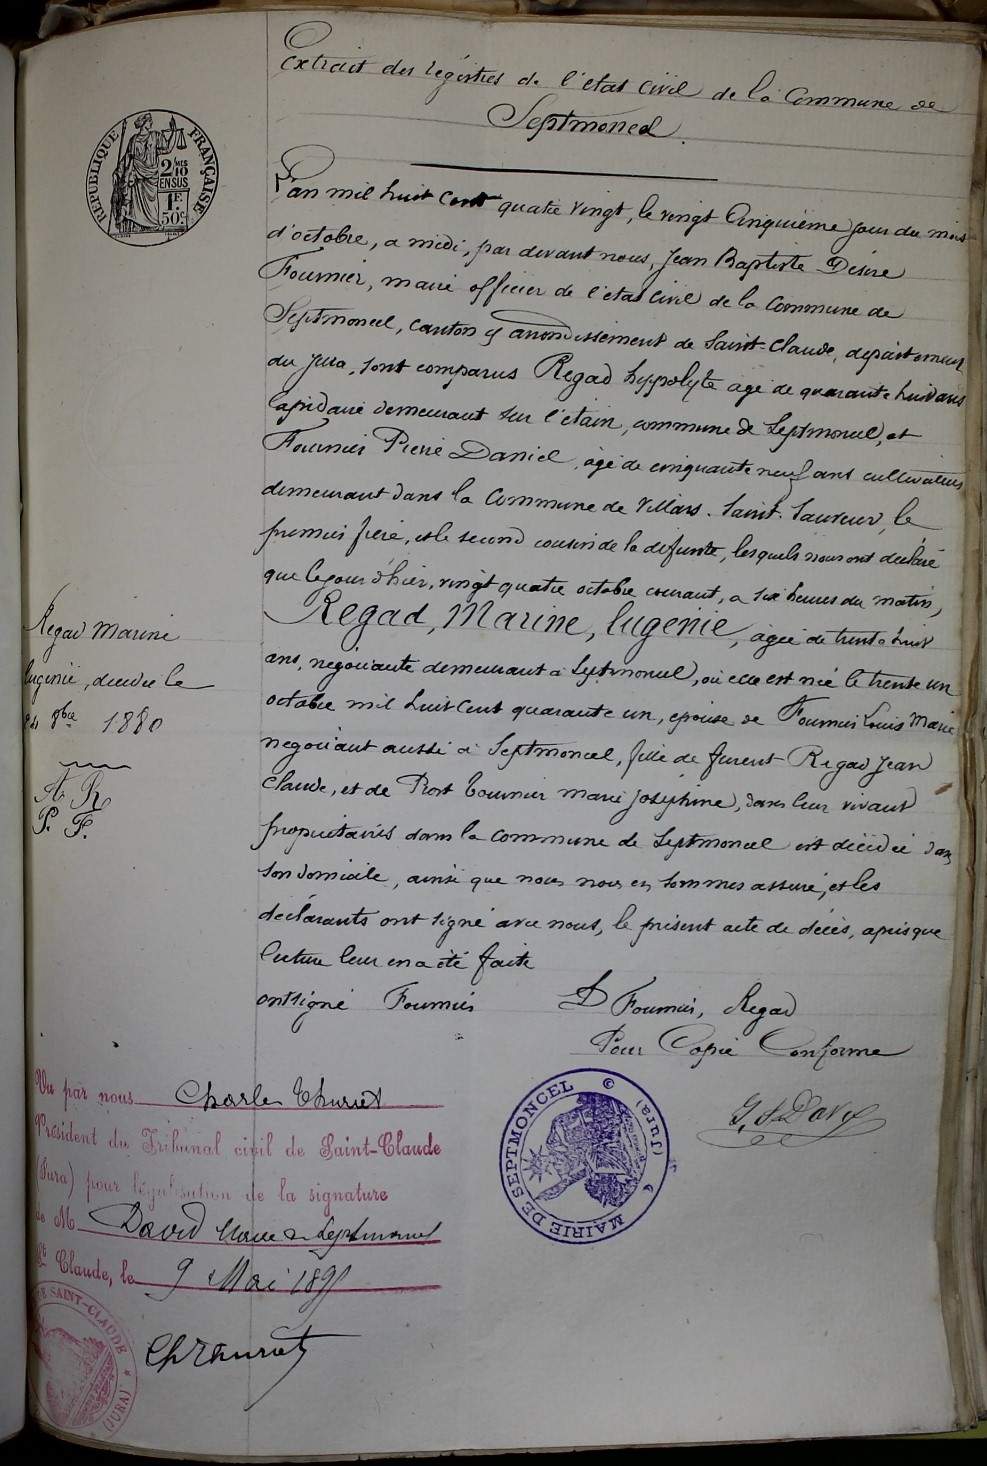 Extrait des régistres de l'état civil de la Commune de
Septmoncel.
REPUBLIQUE FRANÇAISE
2/10mes
EN SUS
1F.
50c.
L'an mil huit cent quatre vingt, le vingt cinquième jour du mois
d'octobre, a midi, par devant nous, Jean Baptiste Désiré
Fournier, maire officier de l'état civil de la commune de
Septmoncel, canton & arrondissement de Saint-Claude, département
du Jura, sont comparus Regad hyppolyte agé de quarante huit ans
lapidaire demeurant sur l'étain, commune de Septmoncel, et
Fournier Pierre Daniel, agé de cinquante neuf ans cultivateur
demeurant dans la Commune de Villars-Saint-Sauveur, le
premier frère, et le second cousin de la defunte, lesquels nous ont declaré
que le jour d'hier, vingt quatre octobre courant, a six heures du matin,
Regad, Marine, Eugénie, agée de trente huit
ans, négociante demeurant à Septmoncel, où elle est née le trente un
octobre mil huit cent quarante un, épouse de Fournier Louis Marie
négociant aussi à Septmoncel, fille de furent Regad Jean
Claude, et de Prost Tournier marie Joséphine, dans leur vivant
propriétaires dans la commune de Septmoncel est décédée dans
son domicile, ainsi que nous nous en sommes assuré, et les
déclarants ont signé avec nous, le présent acte de décès, après que
lecture leur en a été faite
ont signé Fournier D Fournier, Regad
Pour Copie Conforme
Regad Marine
Eugénie, décédée le
24 8bre 1880
A R
P. F.
MAIRIE DE SEPTMONCEL (Jura)
Vu par nous Charles Thuriet
Président du Tribunal civil de Saint-Claude
(Jura) pour légalisation de la signature
de M David Maire de Septmoncel
St Claude, le 9 Mai 189
Ch Thuriet
DE SAINT-CLAUDE
(JURA)